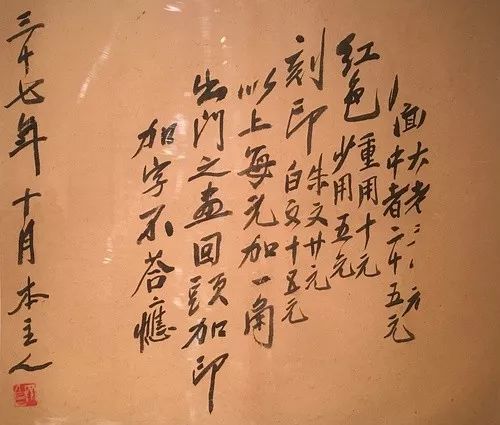 面大者
中者二十五元
紅色重用十元
少用五元
刻印朱文廿元
白文十五元
以上每元加一角
出門之畫回頭加印
加字不答應
三十七年十月本主人